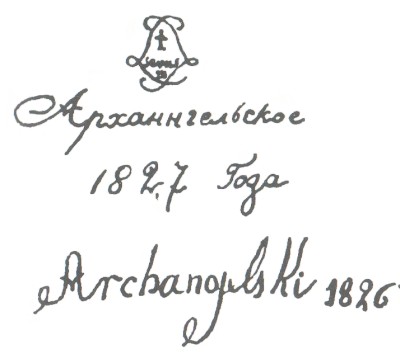 Арханнгельское
182.7 Года
Archangelski 1826